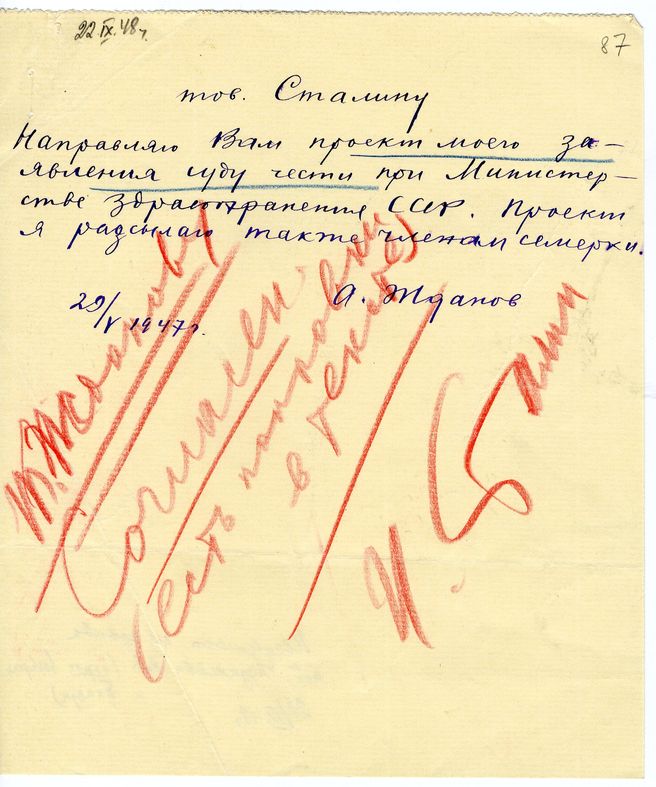 22.IX.48 г.
87
тов. Сталину
Направляю Вам проект моего за-
явления суду чести при Министер-
стве здравоохранения СССР. Проект
я рассылаю также членам семерки.
А. Жданов
29/V 1947 г.
т. Жданову
Согласен
(есть поправки
в тексте)
И. Сталин